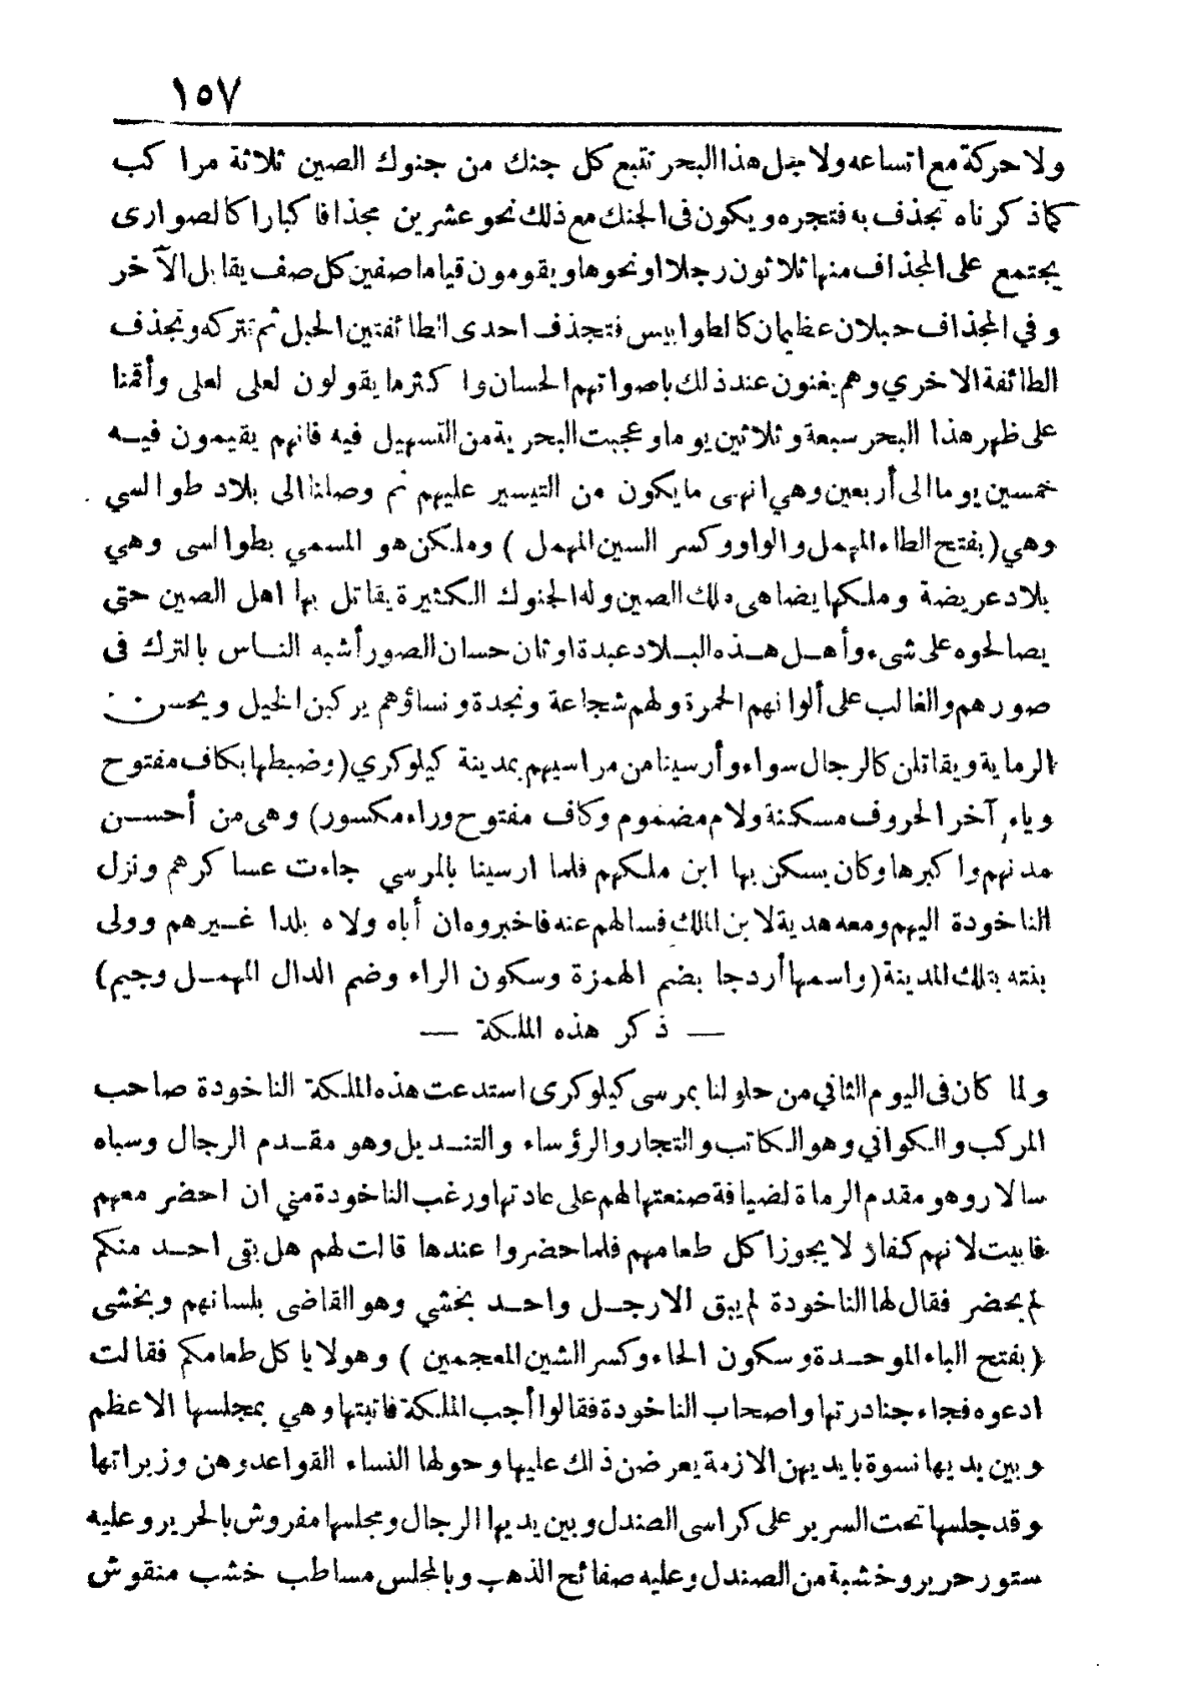 ١٥٧
ولا حركة مع اتساعه ولاجل هذا البحر تتبع كل جنك من جنوك الصين ثلاثة مراكب
كما ذكرناه تجذف به فتجره ويكون فى الجنك مع ذلك نحو عشرين مجذافا كبارا كالصوارى
يجتمع على المجذاف منها ثلاثون رجلا او نحوها ويقومون قياما صفين كل صف يقابل الآخر
وفي المجذاف حبلان عظيمان كالطوابيس فتجذف احدى الطائفتين الحبل ثم تتركه وتجذف
الطائفة الاخري وهم يغنون عند ذلك باصواتهم الحسان واكثرما يقولون لعلى لعلى وأقمنا
على ظهر هذا البحر سبعة وثلاثين يوما وعجبت البحرية من التسهيل فيه فانهم يقيمون فيه
خمسين يوما الى أربعين وهي انهى مايكون من التيسير عليهم ثم وصلنا الى بلاد طوالسي
وهي (بفتح الطاء المهمل والواو وكسر السين المهمل) وملكهن هو المسمي بطوالسى وهي
بلاد عريضة وملكها يضاهى ملك الصين وله الجنوك الكثيرة يقاتل بها اهل الصين حتى
يصالحوه على شىء وأهل هذه البلاد عبدة اوثان حسان الصور أشبه الناس بالترك فى
صورهم والغالب على ألوانهم الحمرة ولهم شجاعة ونجدة ونساؤهم يركبن الخيل ويحسن
الرماية ويقاتلن كالرجال سواء وأرسينا من مراسيهم بمدينة كيلوكري (وضبطها بكاف مفتوح
وياء آخر الحروف مسكنة ولام مضموم وكاف مفتوح وراء مكسور) وهى من أحسن
مدنهم واكبرها وكان يسكن بها ابن ملكهم فلما ارسينا بالمرسي جاءت عساكرهم ونزل
الناخودة اليهم ومعه هدية لابن الملك فسالهم عنه فاخبروه ان أباه ولاه بلدا غيرهم وولى
بنته بتلك المدينة (واسمها أردجا بضم الهمزة وسكون الراء وضم الدال المهمل وجيم)
— ذكر هذه الملكة —
ولما كان فى اليوم الثاني من حلولنا بمرسى كيلوكرى استدعت هذه الملكة الناخودة صاحب
المركب والكواني وهو الكاتب والتجار والرؤساء والتنديل وهو مقدم الرجال وسباه
سالار وهو مقدم الرماة لضيافة صنعتها لهم على عادتها ورغب الناخودة مني ان احضر معهم
فابيت لانهم كفار لايجوز اكل طعامهم فلما حضروا عندها قالت لهم هل بقى احد منكم
لم يحضر فقال لها الناخودة لم يبق الا رجل واحد بخشي وهو القاضى بلسانهم وبخشى
(بفتح الباء الموحدة وسكون الخاء وكسر الشين المعجمين) وهو لا ياكل طعامكم فقالت
ادعوه فجاء جنادرتها واصحاب الناخودة فقالوا أجب الملكة فاتيتها وهي بمجلسها الاعظم
وبين يديها نسوة بايديهن الازمة يعرضن ذلك عليها وحولها النساء القواعد وهن وزيراتها
وقد جلسها تحت السرير على كراسى الصندل وبين يديها الرجال ومجلسها مفروش بالحرير وعليه
ستور حرير وخشبة من الصندل وعليه صفائح الذهب وبالمجلس مساطب خشب منقوش